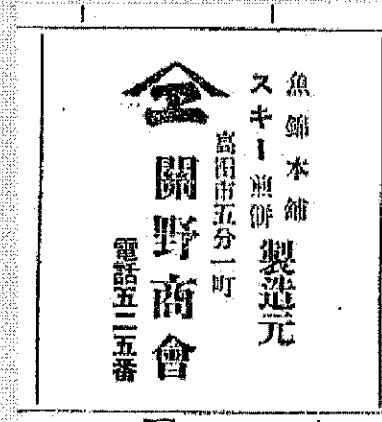 魚錦本舗
スキー煎餅 製造元
高田市五分一町
エ
關野商會
電話五二五番